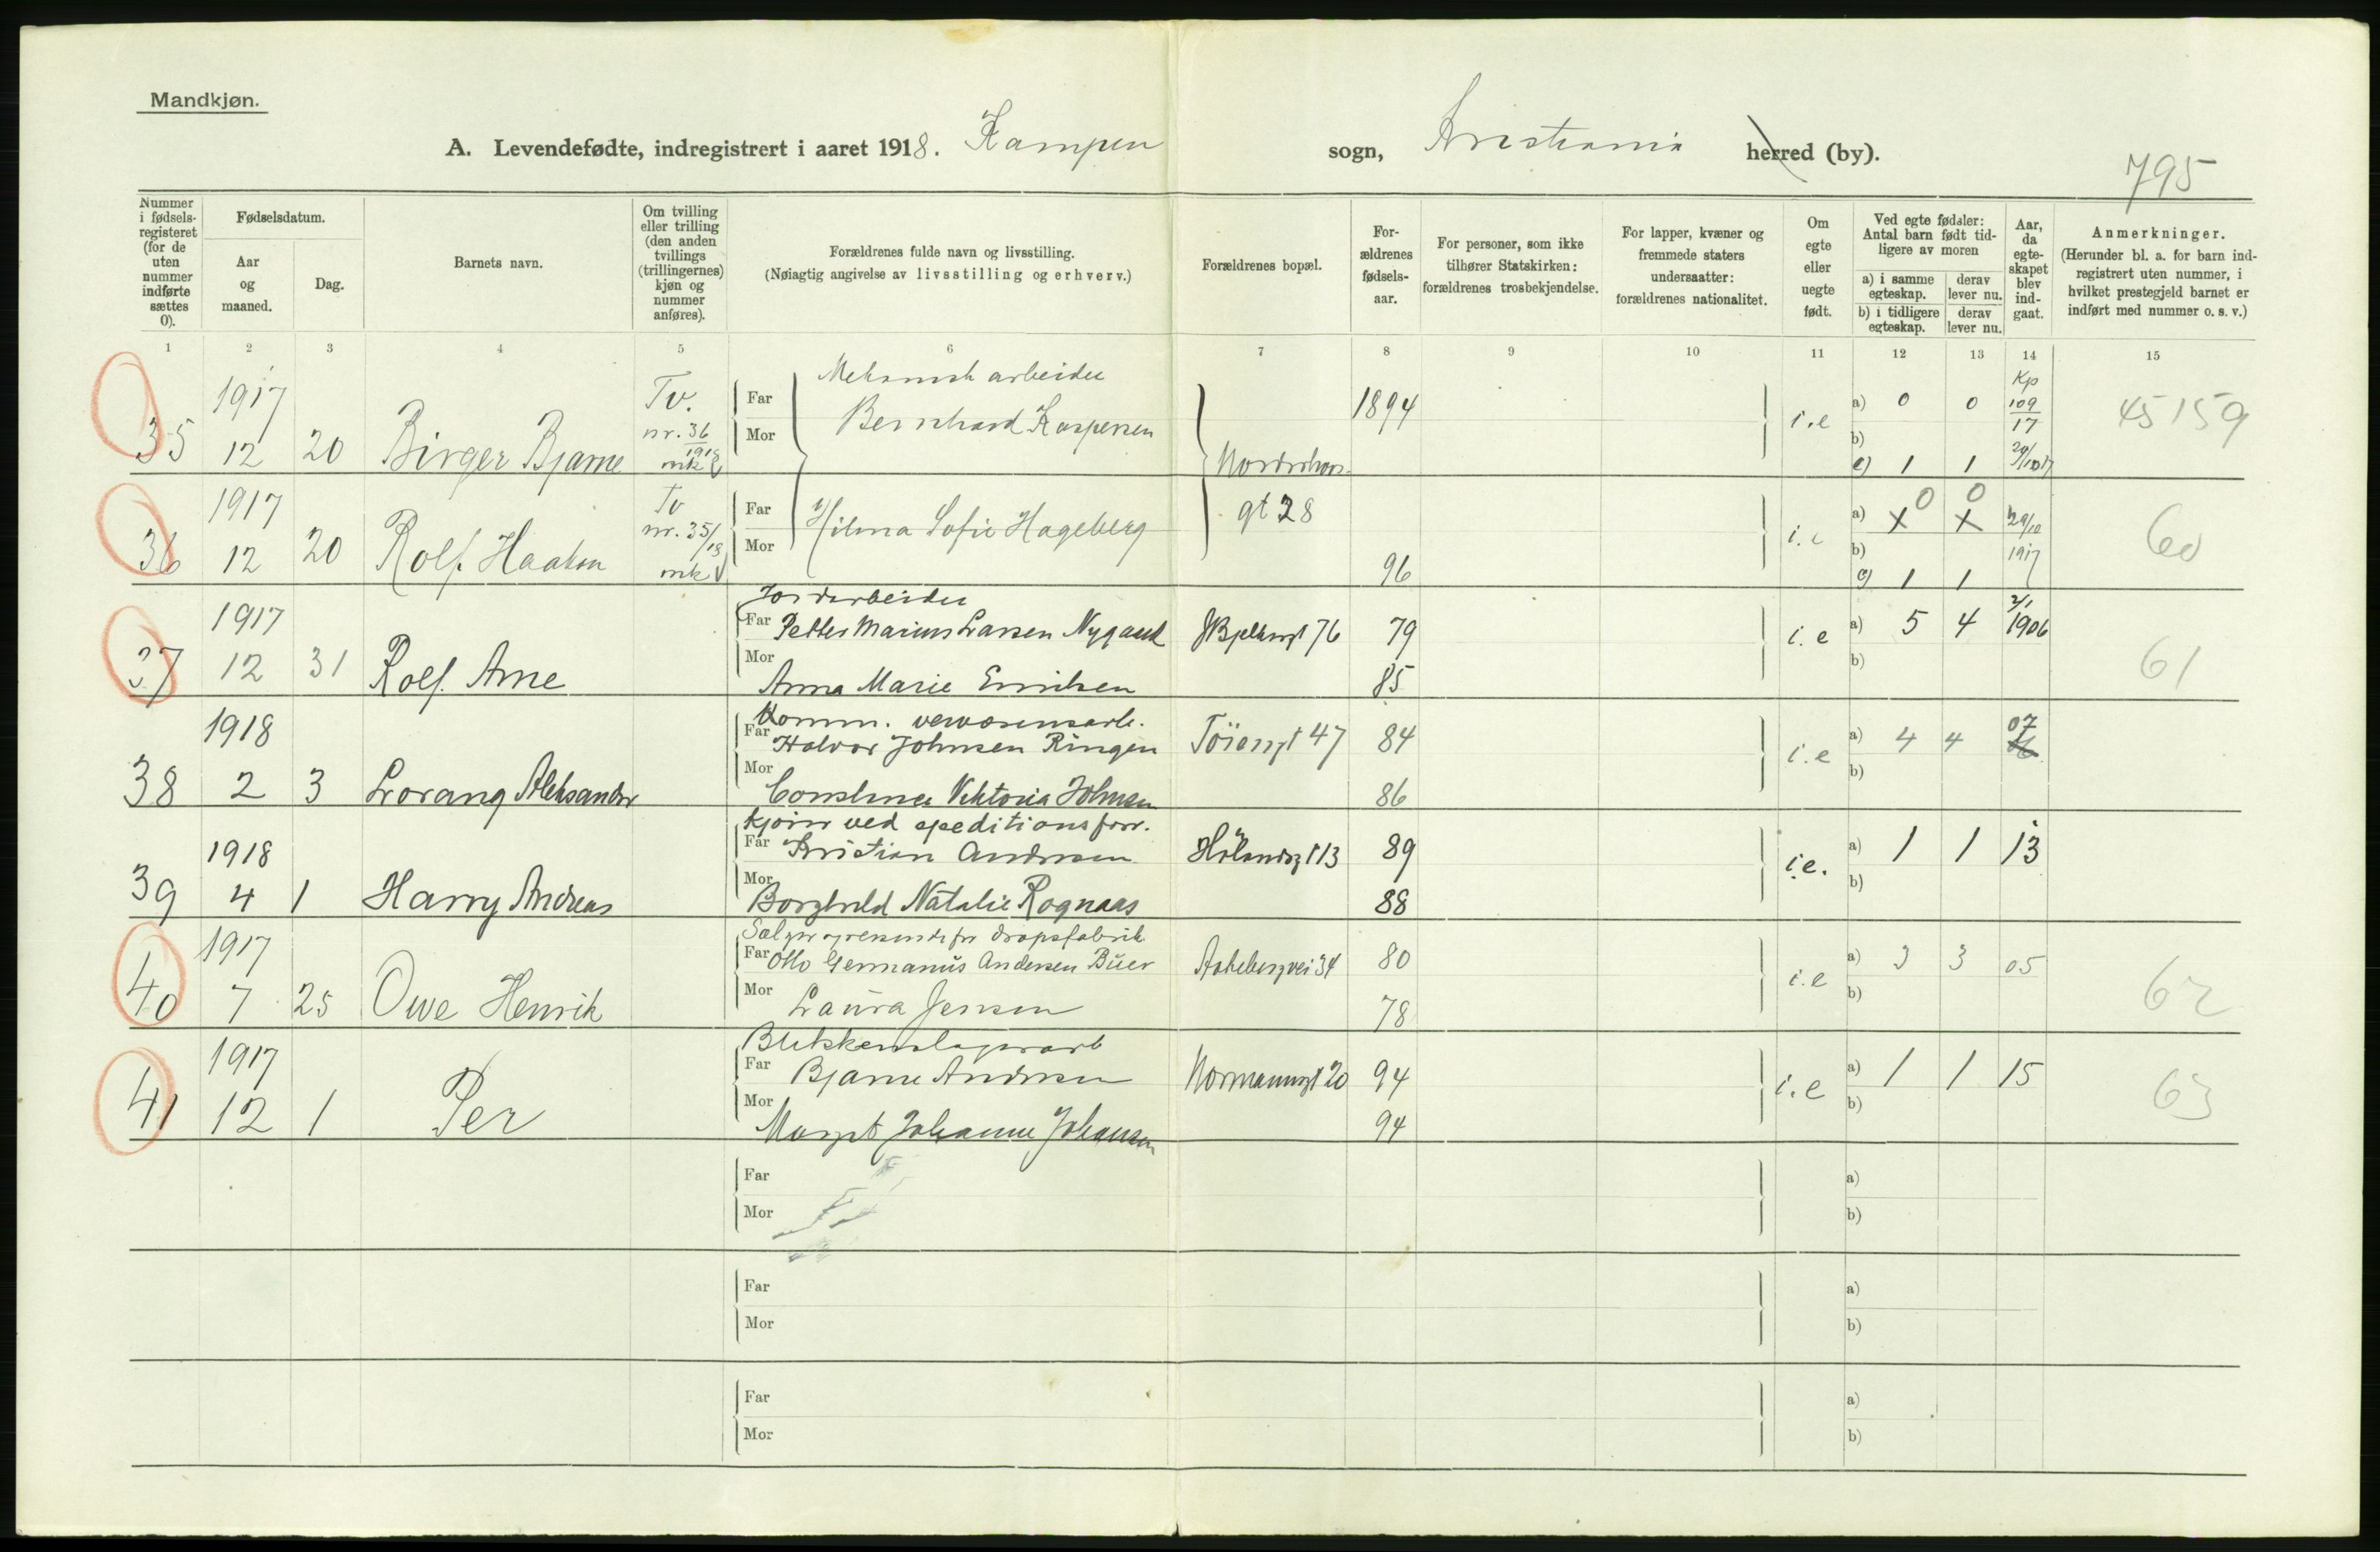 Mandkjøn.
A. Levendefødte, indregistrert i aaret 1918. Kampen sogn, Kristiania herred (by).
795
Nummer i fødsels-registeret (for de uten nummer indførte sættes 0).
Fødselsdatum.
Aar og maaned.
Dag.
Barnets navn.
Om tvilling eller trilling (den anden tvillings (trillingernes) kjøn og nummer anføres).
Forældrenes fulde navn og livsstilling.
(Nøiagtig angivelse av livsstilling og erhverv.)
Forældrenes bopæl.
For-ældrenes fødsels-aar.
For personer, som ikke tilhører Statskirken: forældrenes trosbekjendelse.
For lapper, kvæner og fremmede staters undersaatter: forældrenes nationalitet.
Om egte eller uegte født.
Ved egte fødsler: Antal barn født tid-ligere av moren
a) i samme egteskap. derav lever nu.
b) i tidligere egteskap. derav lever nu.
Aar, da egte-skapet blev ind-gaat.
Anmerkninger.
(Herunder bl. a. for barn ind-registrert uten nummer, i hvilket prestegjeld barnet er indført med nummer o. s. v.)
1 2 3 4 5 6 7 8 9 10 11 12 13 14 15
Mekanisk arbeider
35 1917 12 20 Birger Bjarne Tv. nr. 36 1918 mk
Far Bernhard Kaspersen 1894 i.e a) 0 0 Kp 109 17 45159
Mor b)
c) 1 1
36 1917 12 20 Rolf Haakon Tv nr. 35/18 mk
Far Hilma Sofie Hageberg gt 28 i.e a) x 0 x 0 29/10 1917 60
Mor 96 b)
c) 1 1
Jordarbeider
37 1917 12 31 Rolf Arne
Far Petter Marius Larsen Nygaard 76 79 i.e a) 5 4 2/1 1906 61
Mor Anna Marie Emilsen 85 b)
Komm. veivæsensarb.
38 1918 2 3 Lorang Aleksander
Far Halvor Johnsen Ringen Töiengt 47 84 i.e a) 4 4 07
Mor Constance Viktoria Johnsen 86 b)
Kjører ved speditionsforr.
39 1918 4 1 Harry Andreas
Far Kristian Andersen Hölandsgt 13 89 i.e. a) 1 1 13
Mor Borghild Natalie Rognaas 88 b)
dropsfabrik
40 1917 7 25 Owe Henrik
Far Otto Germanus Andersen Buer Aakebergvei 34 80 i.e a) 3 3 05 62
Mor Laura Jensen 78 b)
Blikkenslagerarb
41 1917 12 1 Per
Far Bjarne Andersen Normannsgt 20 94 i.e a) 1 1 15 63
Mor Margit Johanne Johansen 94 b)
Far a)
Mor b)
Far a)
Mor b)
Far a)
Mor b)